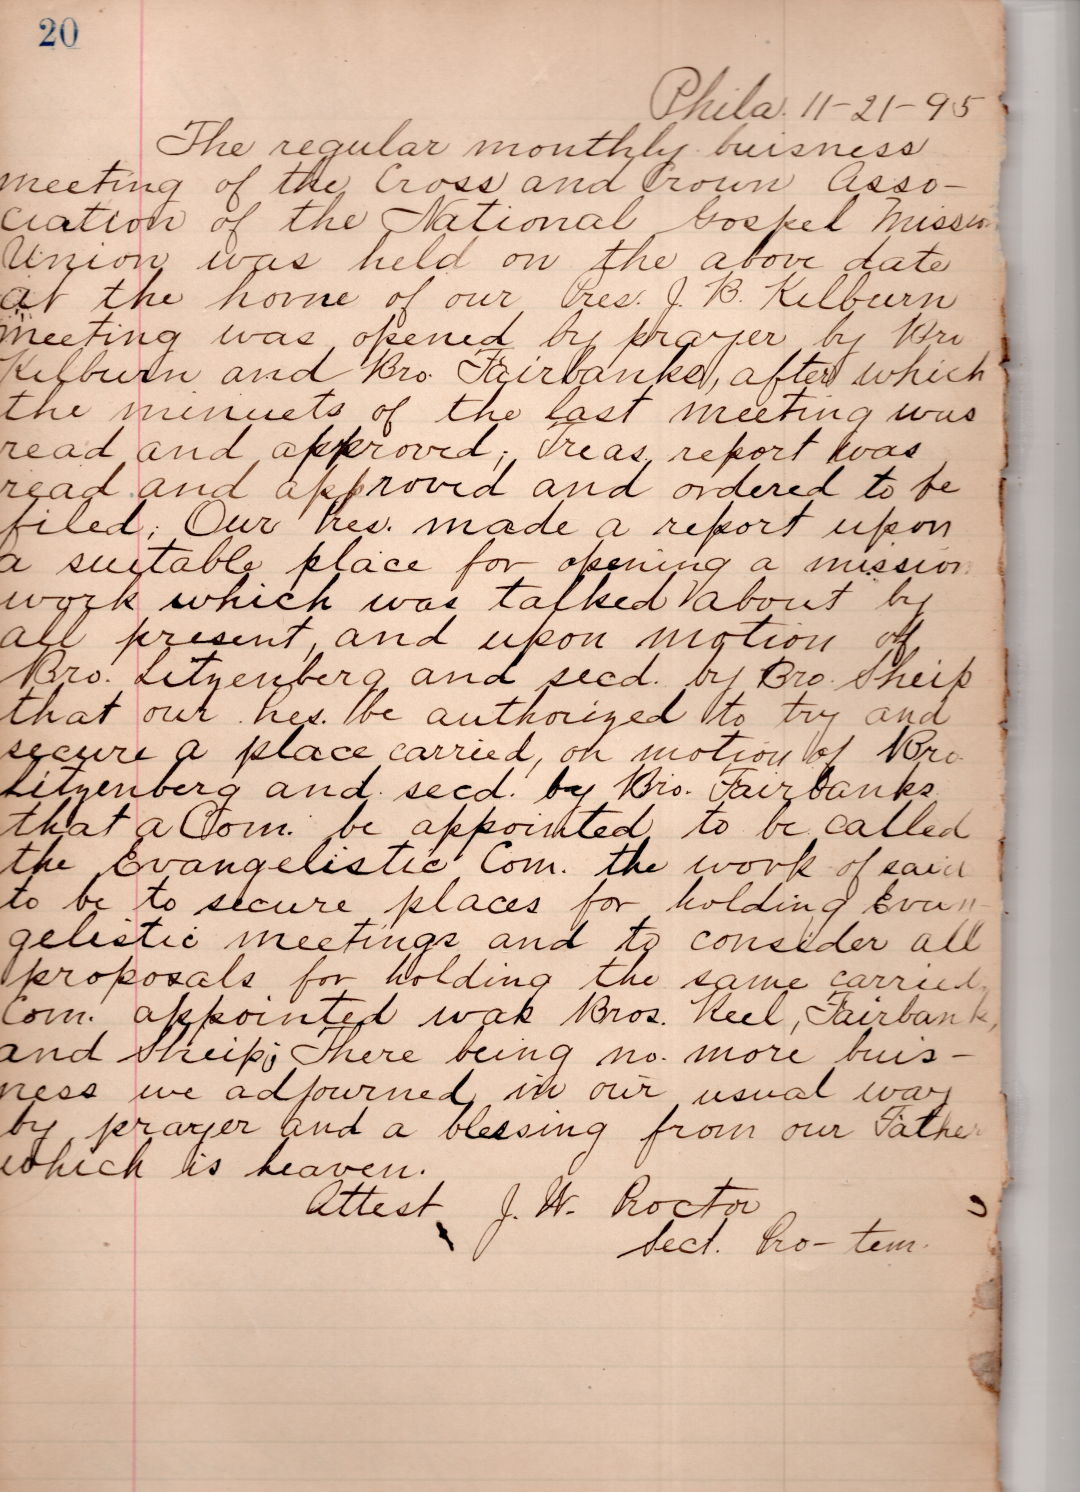 20
Phila. 11-21-95
The regular monthly buisness
meeting of the Cross and Crown Asso-
ciation of the National Gospel Mission
Union was held on the above date
at the home of our Pres. J. B. Kelburn
meeting was opened by prayer by Bro
Kelburn and Bro. Fairbanks, after which
the minuets of the last meeting was
read and approved; Treas. report was
read and approved and ordered to be
filed; Our Pres. made a report upon
a suitable place for opening a mission
work which was talked about by
all present, and upon motion of
Bro. Litzenberg and secd. by Bro. Sheip
that our Pres. be authorized to try and
secure a place carried, on motion of Bro
Litzenberg and secd. by Bro. Fairbanks
that a Com. be appointed to be called
the Evangelistic Com. the work of said
to be to secure places for holding Evan-
gelistic meetings and to consider all
proposals for holding the same carried,
Com. appointed was Bros. Keel, Fairbank,
and Sheip; There being no more buis-
ness we adjourned in our usual way
by prayer and a blessing from our Father
which is heaven.
Attest J. W. Proctor
Sect. Pro-tem.